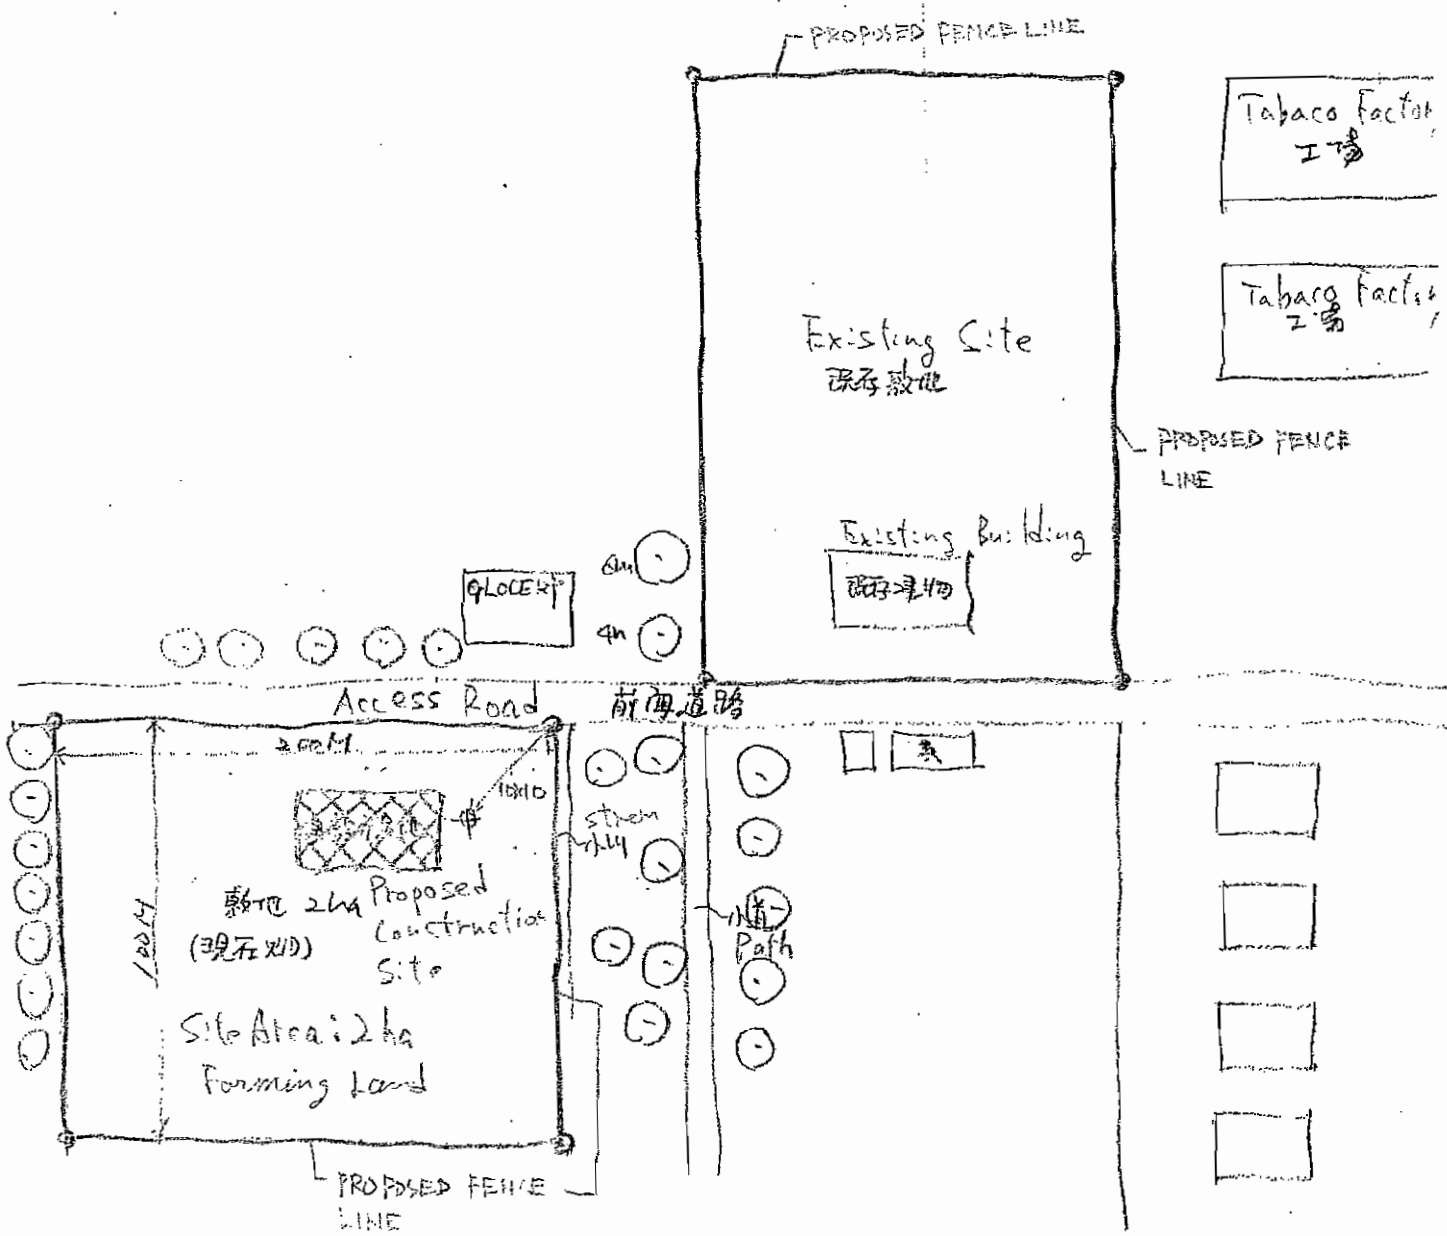 PROPOSED FENCE LINE
Tabaco Factor
工場
Tabaco Factor
工場
Existing Site
既存敷地
PROPOSED FENCE
LINE
Existing Building
既存建物
GLOCERY
6m
4m
Access Road 前面道路
200M
10x10
strem
小川
敷地 2ha
(現在畑)
Proposed
Construction
Site
100M
小道
Path
Site Area : 2ha
Farming Land
PROPOSED FENCE
LINE